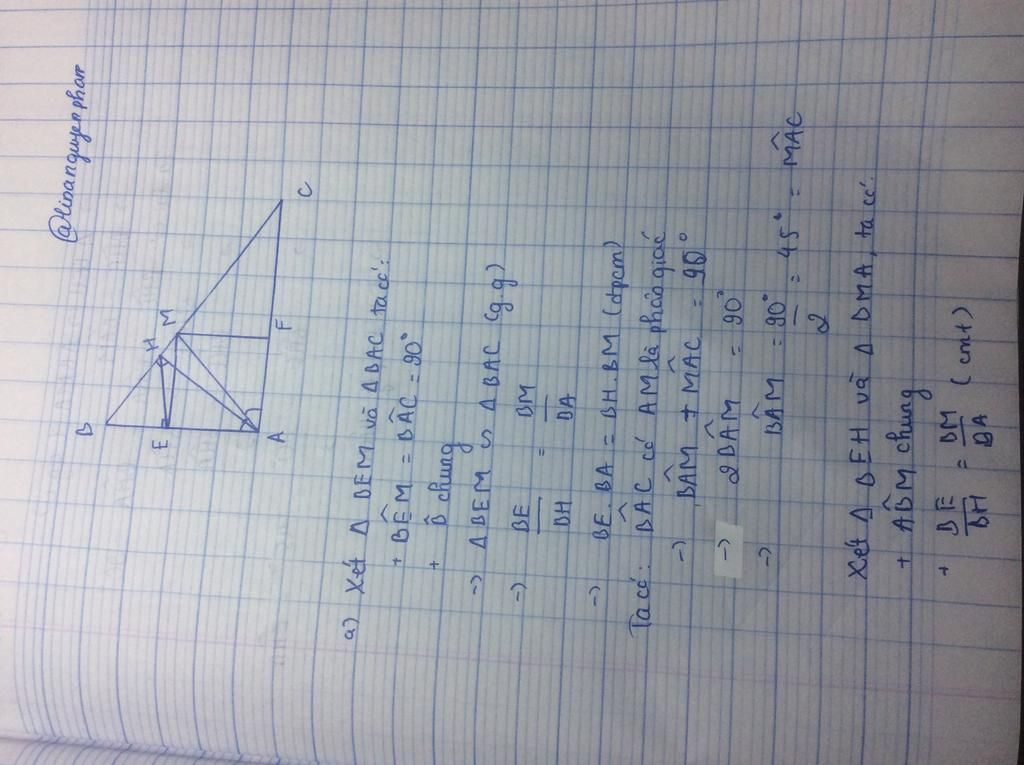 @lisanguyenphan
B
E
H
M
A
F
C
a) Xét Δ BEM và Δ BAC ta có:
+ BÊM = BÂC = 90°
+ B̂ chung
-> Δ BEM ∽ Δ BAC (g.g)
-> BE/BH = BM/BA
-> BE.BA = BH.BM (đpcm)
Ta có: BÂC có AM là phân giác
-> BÂM + MÂC = 90°
-> 2BÂM = 90°
-> BÂM = 90°/2 = 45° = MÂC
Xét Δ BEH và Δ BMA, ta có:
+ AB̂M chung
+ BE/BH = BM/BA (cmt)